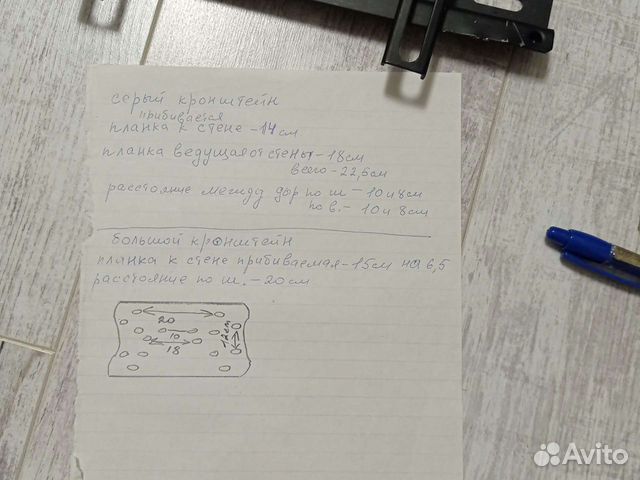 серый кронштейн
прибивается
планка к стене - 14 см
планка ведущая от стены - 18 см
всего - 22,5 см
расстояние между дыр по ш - 10 и 8 см
по в. - 10 и 8 см
большой кронштейн
планка к стене прибиваемая - 15 см на 6,5
расстояние по ш. - 20 см
20
10
18
12 см
Avito